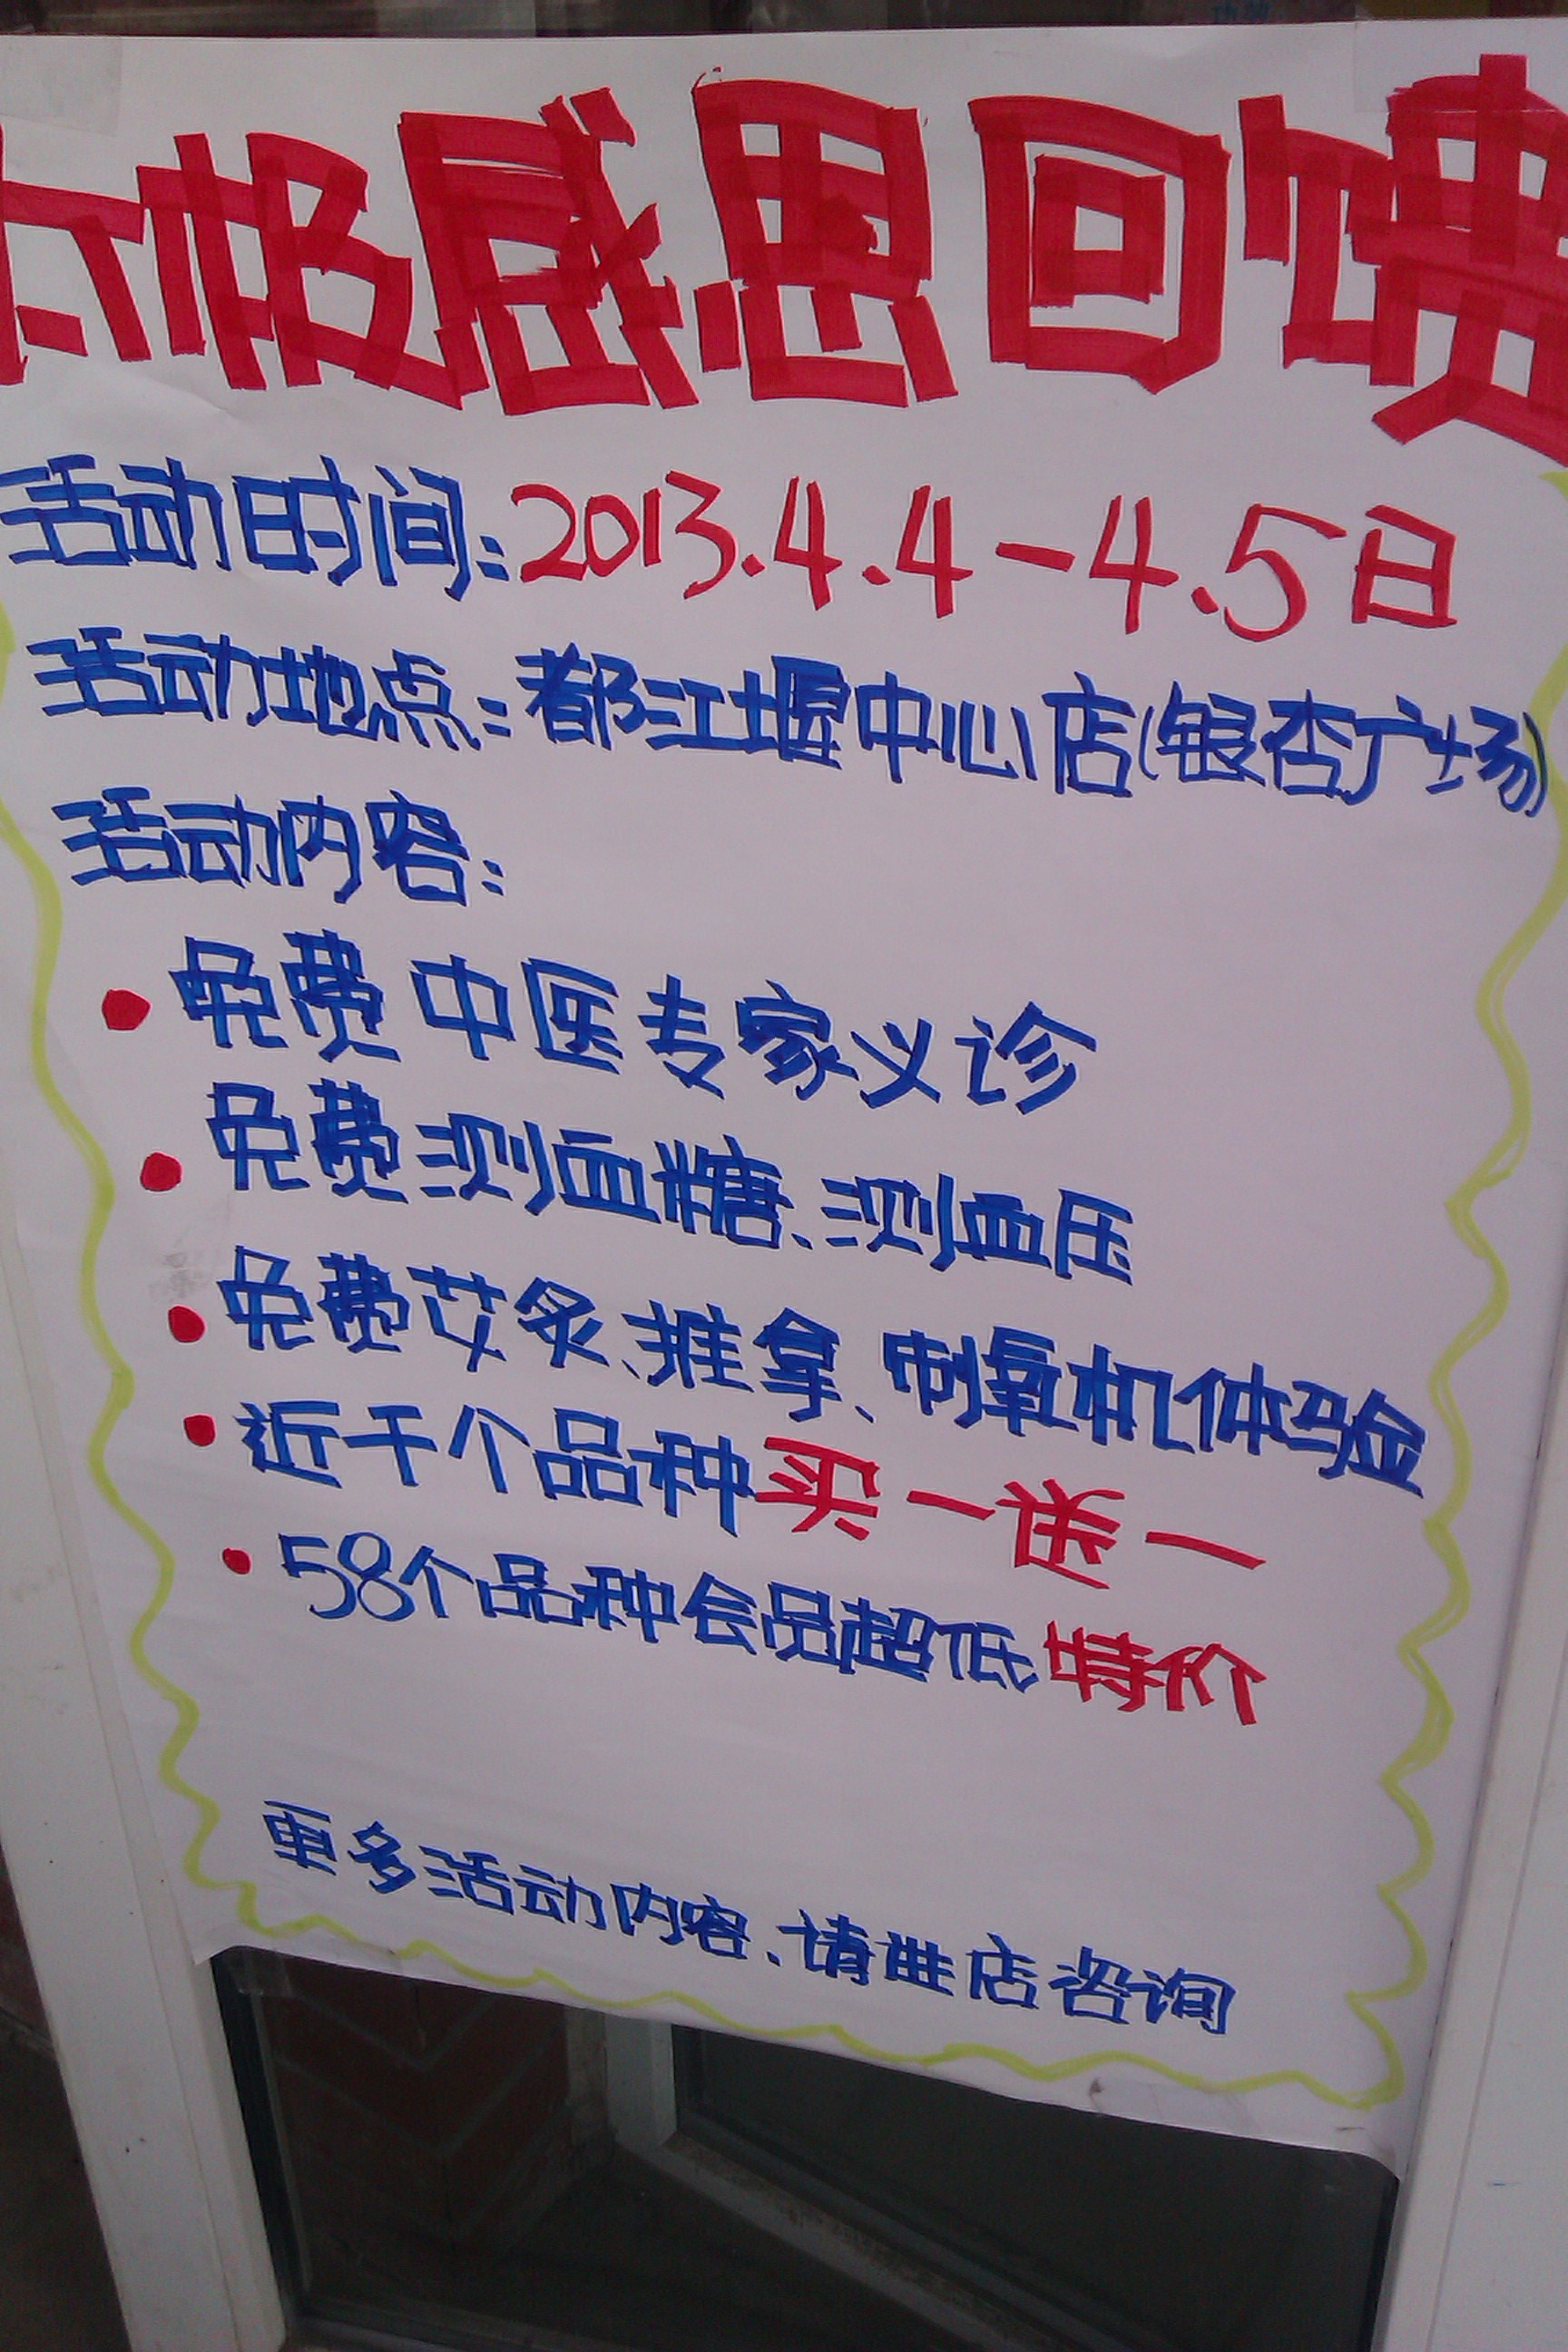 太极感恩回馈
活动时间:2013.4.4-4.5日
活动地点:都江堰中心店(银杏广场)
活动内容:
• 免费中医专家义诊
• 免费测血糖、测血压
• 免费艾炙、推拿、制氧机体验
• 近千个品种买一送一
• 58个品种会员超低特价
更多活动内容、请进店咨询